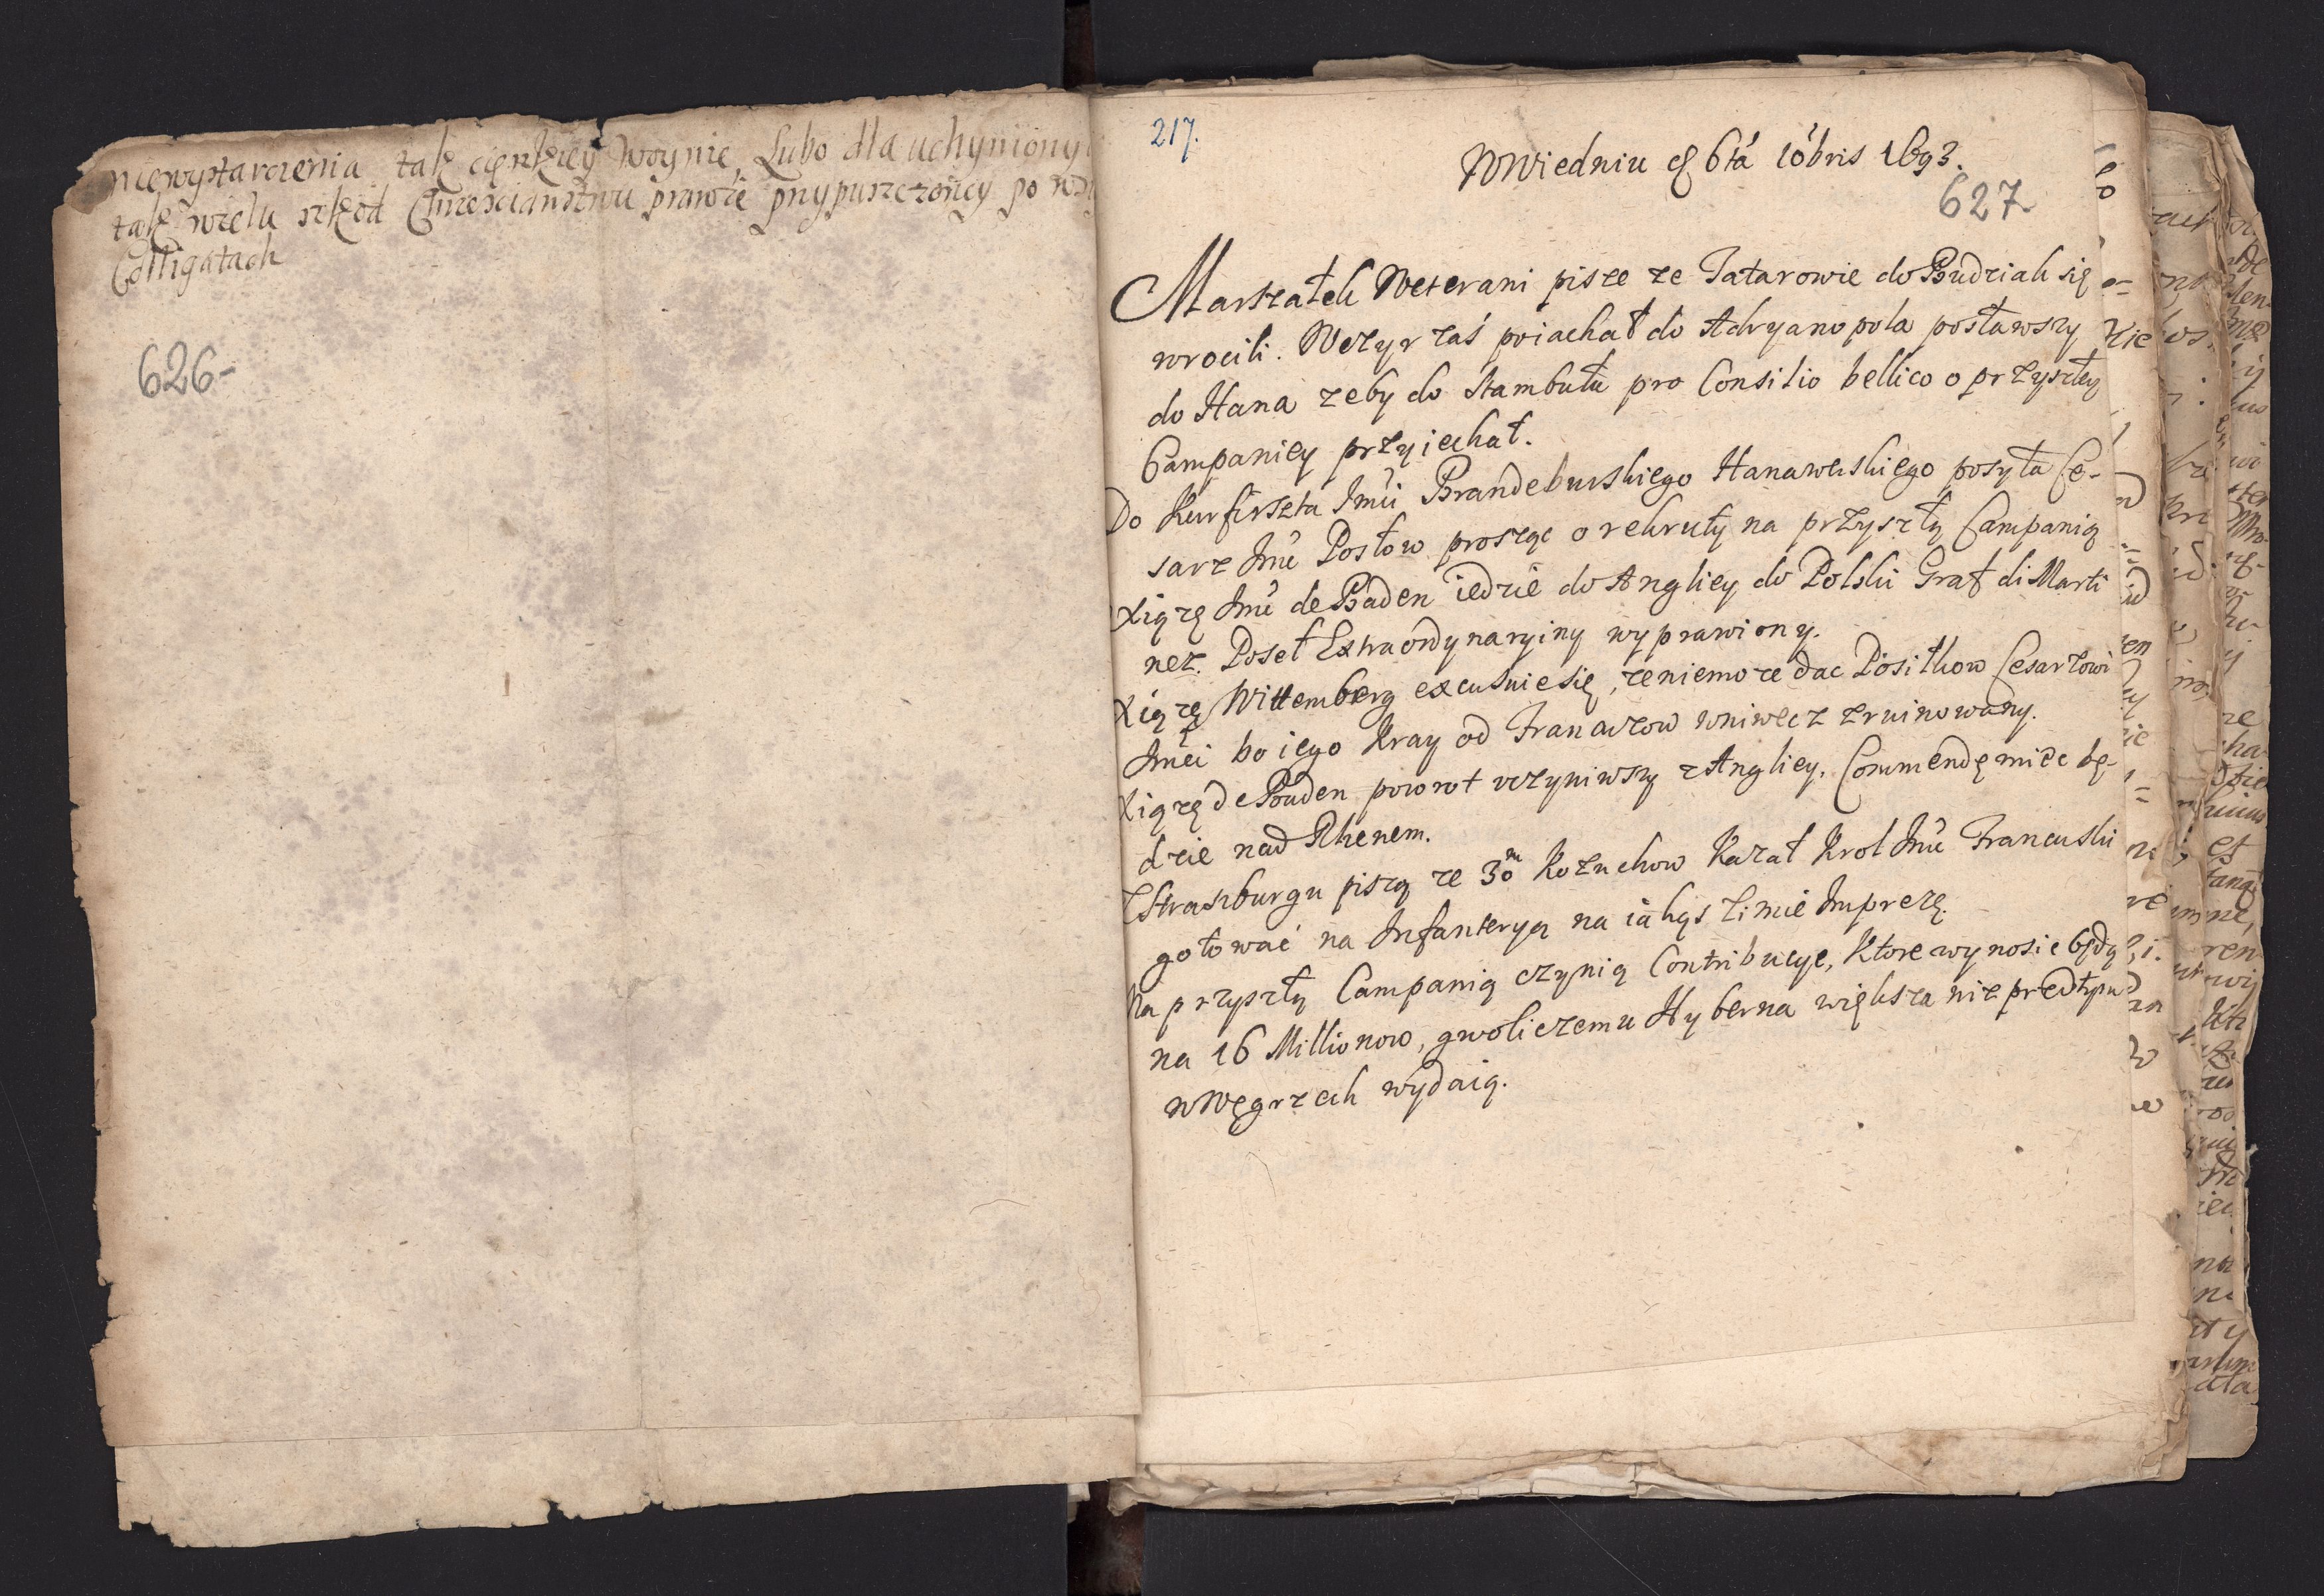 niewystarczenia tak cięszkiey woynie, Lubo dla uchyniony
tak wielu szkod Chrzescianstwu prawie przypuszczoney po
Colligatach
626-
217.
WWiedniu 6ta 10bris 1693.
627
Marszałek Weterani pisze ze Tatarowie do Budziak się
wrocili. Wezyr zaś poiachał do Adryanopola posławszy
do Hana zeby do Stambułu pro Consilio bellico o przyszłey
Campaniey przyiechał.
Do Kurfirszta Jmci Brandeburskiego Hanawerskiego posyła Ce-
sarz Jmć Posłow prosząc o rekruty na przyszłą Campanią
Xiąze Jmć de Baden iedzie do Angliey do Polski Graf di Marti
nez. Poseł Extraordynaryiny wyprawiony.
Xiązę Wittemberg excusuie się, ze niemoze dac Posiłkow Cesarzowi
Jmci bo iego Kray od Francuzow wniwecz zruinowany.
Xiązę de Baden powrot uczyniwszy z Angliey, Commendę miec bę-
dzie nad Rhenem.
ZStraszburgu piszą ze 30m Kozuchow Kazał Krol Jmć Francuski
gotować na Infanteryą na iakąs zimie Imprezę.
Na przyszłą Campanią czynią Contribucye, Ktore wynosic będą
na 16 Millionow, gwoli czemu Hyberna większa niz przedtym
wWęgrzech wydaią.